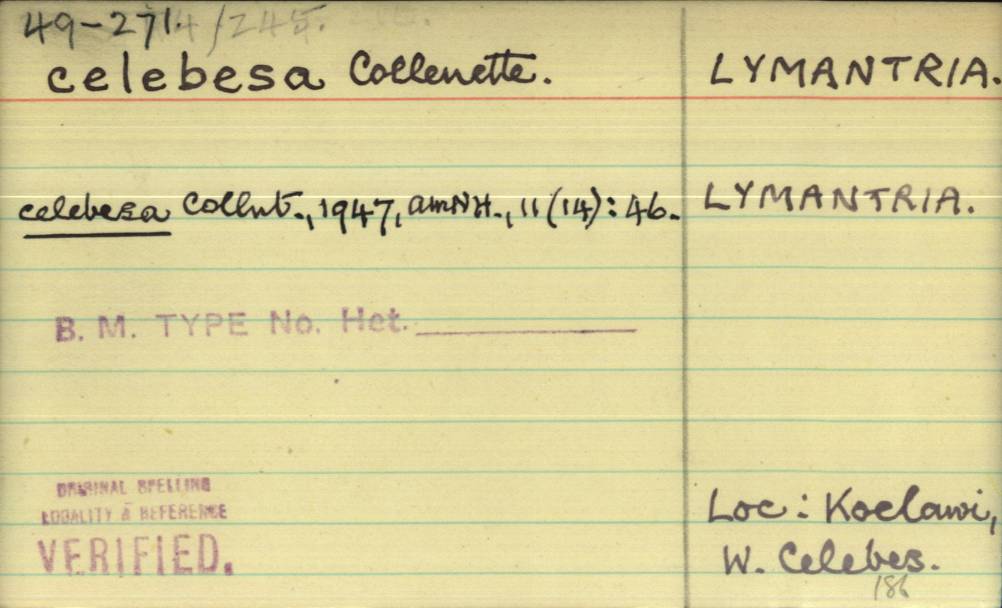 49-271.
celebesa Collenette. LYMANTRIA.
celebesa Collnt., 1947, amNH., 11(14): 46. LYMANTRIA.
B. M. TYPE No. Het.
ORIGINAL SPELLING
LOCALITY & REFERENCE
VERIFIED.
Loc: Koelawi,
W. Celebes.
186